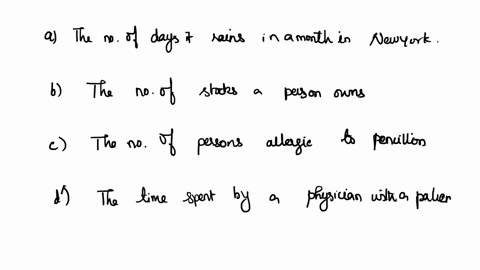 a) The no. of days it rains in a month in Newyork.
b) The no. of stocks a person owns
c) The no. of persons allergic to penicillin
d) The time spent by a physician with a patien